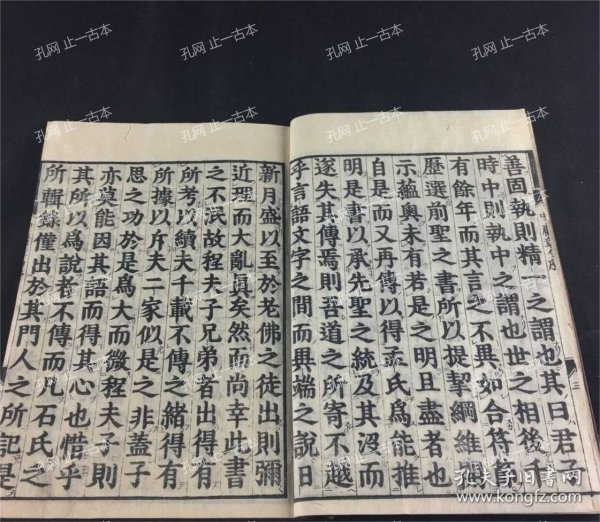 善固執則精一之謂也其曰君子
時中則執中之謂也世之相後千
有餘年而其言之不異如合符節
歷選前聖之書所以提挈綱維開
示蘊奧未有若是之明且盡者也
自是而又再傳以得孟氏爲能推
明是書以承先聖之統及其沒而
遂失其傳焉則吾道之所寄不越
乎言語文字之間而異端之說日
新月盛以至於老佛之徒出則彌
近理而大亂眞矣然而尚幸此書
之不泯故程夫子兄弟者出得有
所考以續夫千載不傳之緒得有
所據以斥夫二家似是之非蓋子
思之功於是爲大而微程夫子則
亦莫能因其語而得其心也惜乎
其所以爲說者不傳而凡石氏之
所輯錄僅出於其門人之所記是
三
孔网 止一古本
孔夫子旧书网
www.kongfz.com